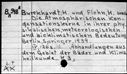 Burckhardt,H. und Flohn,H.
Die atmosphärischen Kon-
densationskerne in ihrer phy-
sikalischen,meteorologischen
und bioklimatischen Bedeutung
Berlin,Springer,1939
= Abhandlungen aus
dem Gebiet der Bäder und Klima
heilkunde.